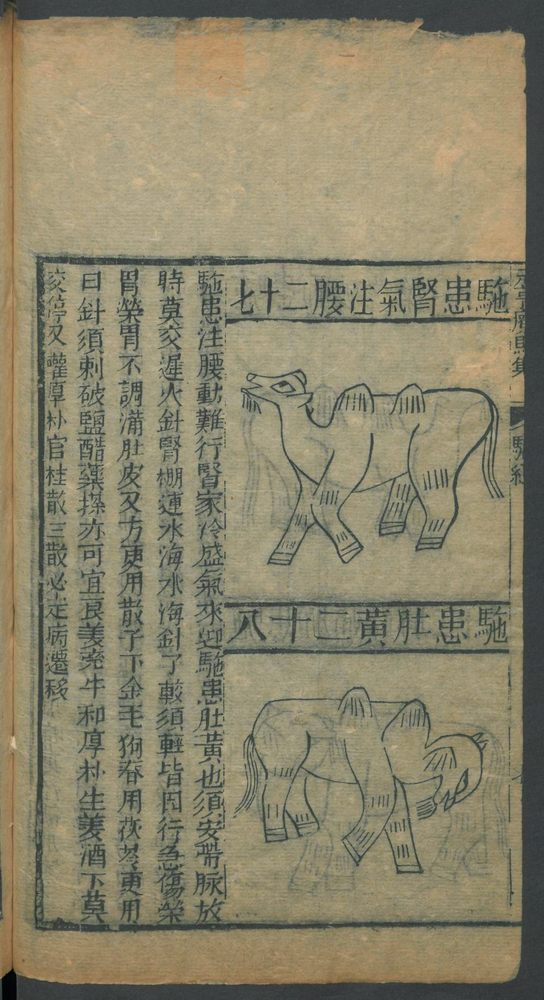 駞經
駞患腎氣注腰二十七
駞患肚黃二十八
駞患注腰動難行腎家冷盛氣來迎駞患肚黃也須安帶脉放
時莫交遲火針腎棚連水海水海針了較須輕皆因行急傷榮
胃榮胃不調滿肚皮又方更用散子下金毛狗脊用茯苓更用
曰針須刺破鹽醋藥搽亦可宜良姜兖牛和厚朴生姜酒下莫
交停又嚾厚朴官桂散三散必定病遷移